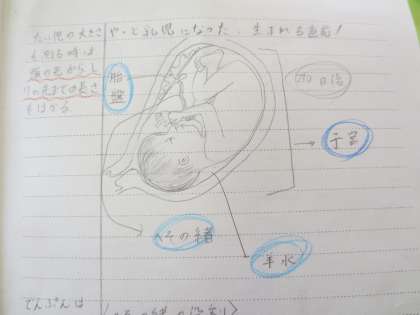 たい児の大きさ
を測る時は
頭の先からし
りの先までの長さ
をはかる
やっと乳児になった。生まれる直前!
胎盤
子宮
へその緒
羊水
でんぷんは